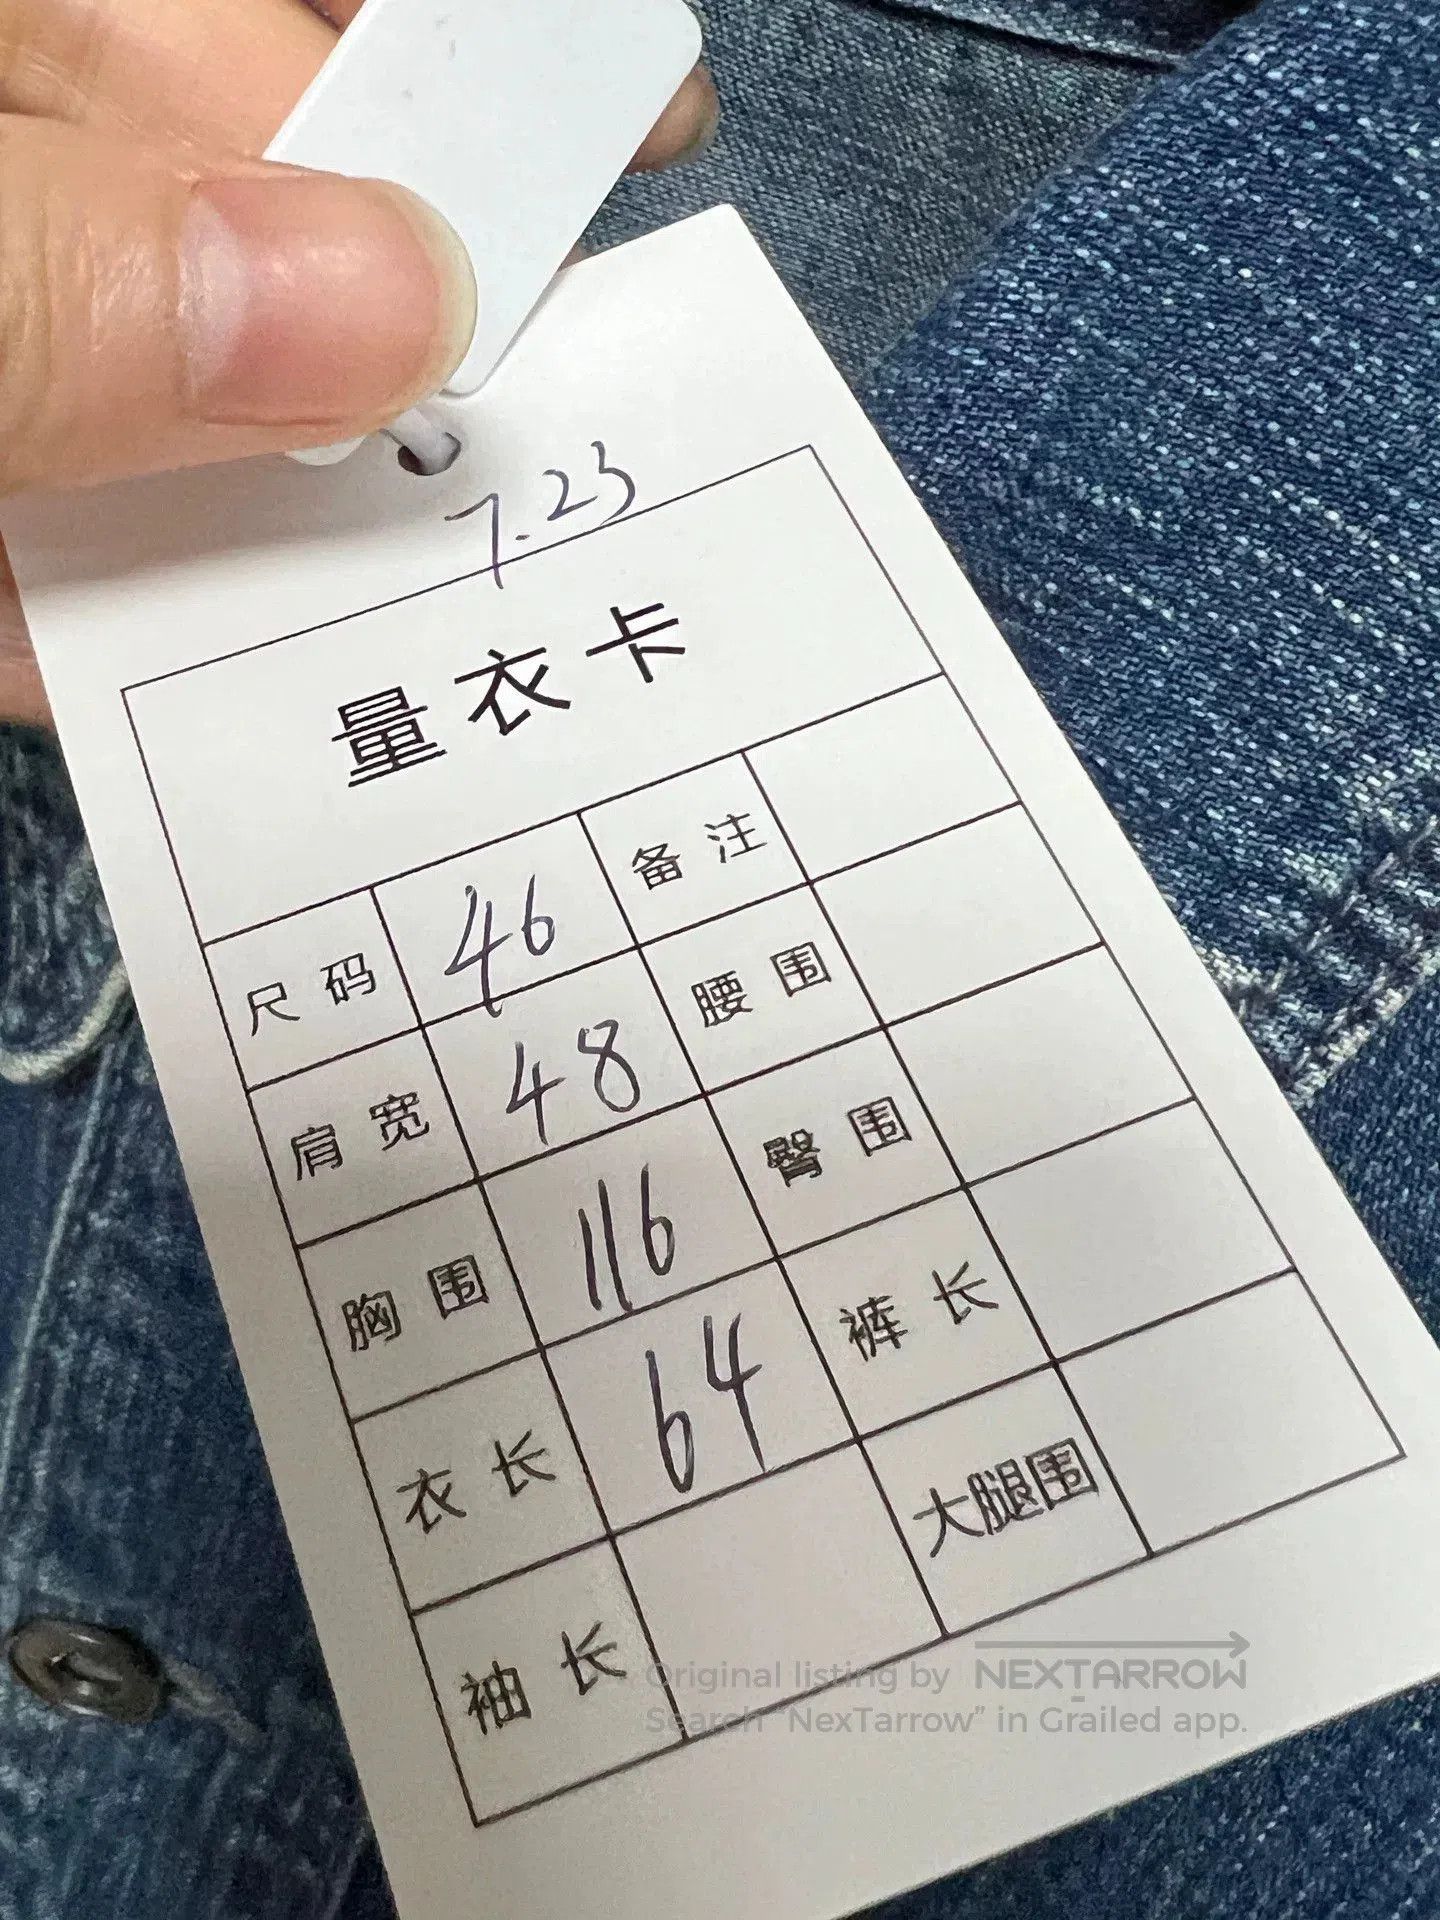 7.23
量衣卡
尺码 46 备注
肩宽 48 腰围
胸围 116 臀围
衣长 64 裤长
袖长 大腿围
Original listing by NEXTARROW
Search "NexTarrow" in Grailed app.